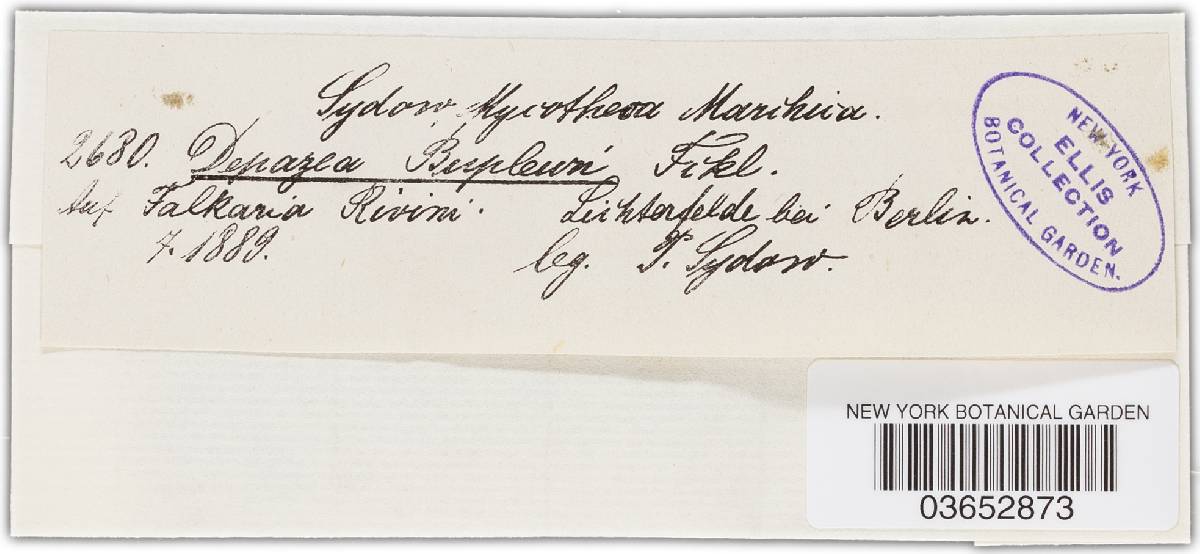 Sydow, Mycotheca Marchica.
2680. Depazea Bupleuri Fckl.
Auf Falkaria Rivini. Lichterfelde bei Berlin.
7. 1889. leg. P. Sydow.
NEW YORK
BOTANICAL GARDEN.
ELLIS
COLLECTION
NEW YORK BOTANICAL GARDEN
03652873